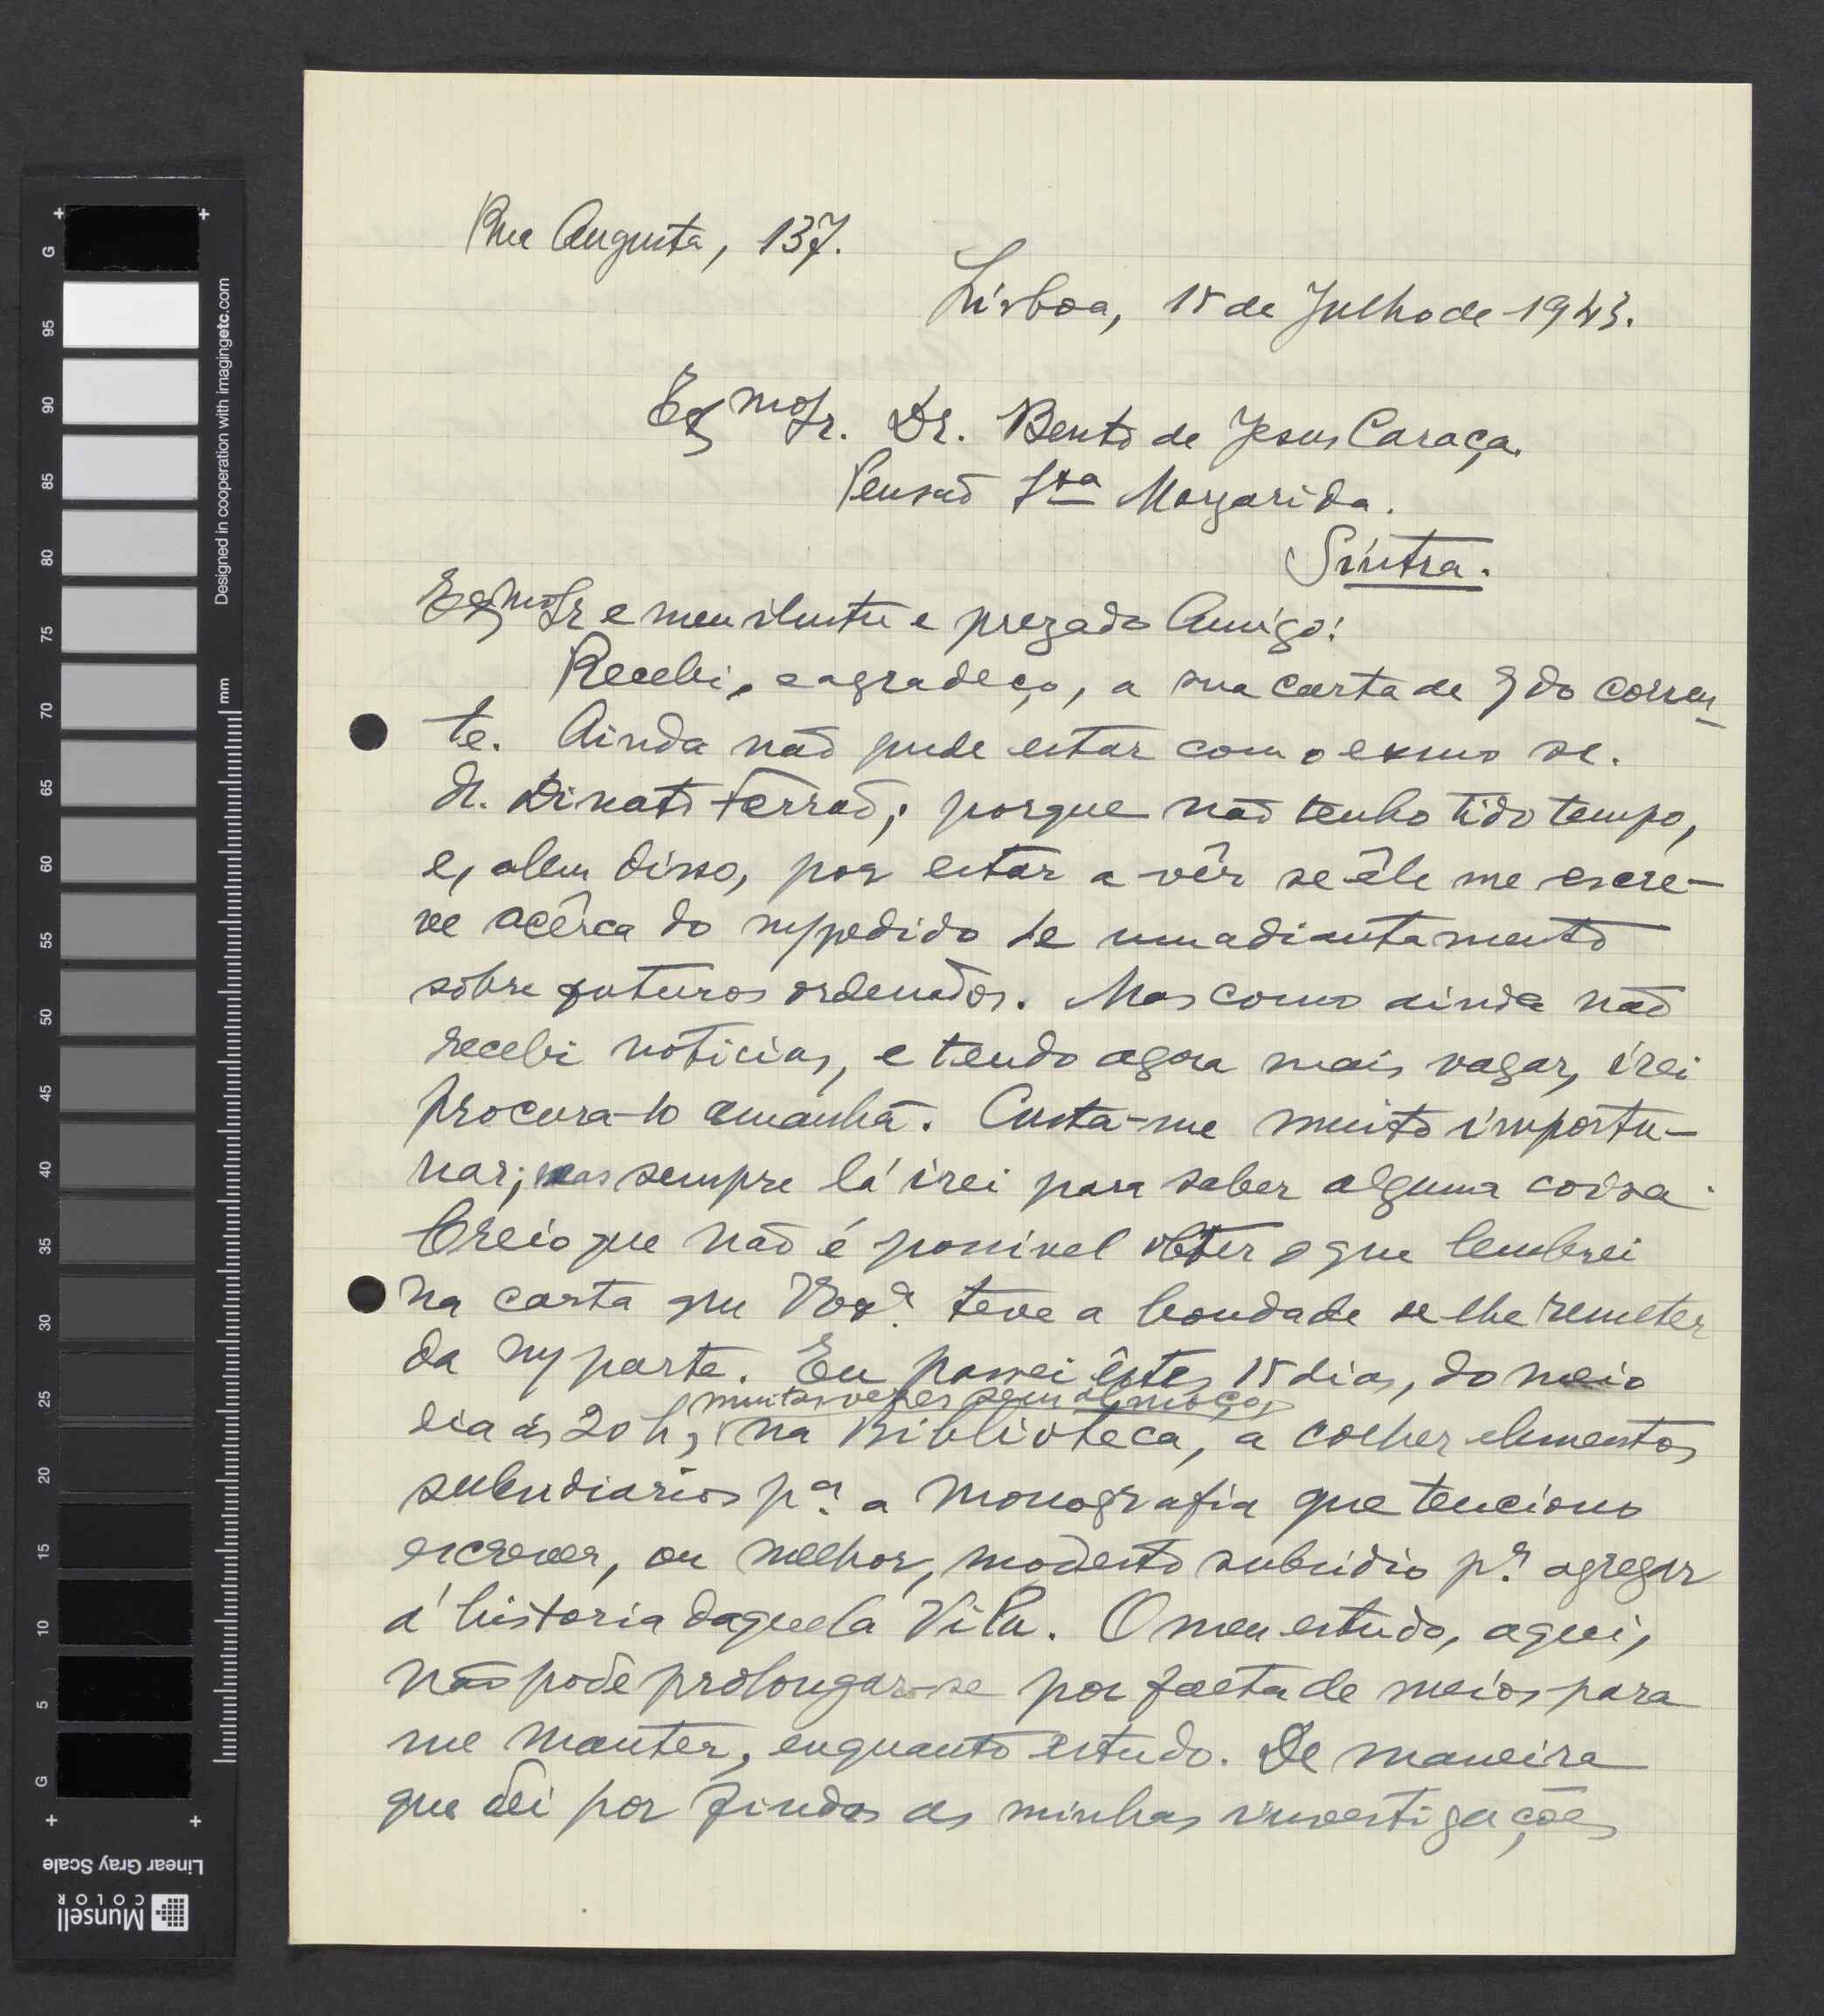 Rua Augusta, 137.
Lisboa, 15 de Julho de 1943.
Exmo Sr. Dr. Bento de Jesus Caraça.
Pensão Sta Margarida.
Sintra.
Exmo Sr e meu ilustre e prezado Amigo:
Recebi, e agradeço, a sua carta de 9 do corren-
te. Ainda não pude estar com o exmo sr.
dr. Ferrão; porque não tenho tido tempo,
e, alem disso, por estar a vêr se êle me escre-
ve acêrca do m/pedido de um adiantamento
sôbre futuros ordenados. Mas como ainda não
recebi noticias, e tendo agora mais vagar, irei
procura-lo amanhã. Custa-me muito importu-
nar; mas sempre lá irei para saber alguma coisa.
Creio que não é possivel obter o que lembrei
na carta que VExª. teve a bondade de lhe remeter
da m/ parte. Eu passei êstes 15 dias, do meio
dia ás 20 h, muitas vezes sem almoço, na Biblioteca, a colher elementos
subsidiarios pª. a monografia que tenciono
escrever, ou melhor, modesto subsidio pª. agregar
á historia daquela Vila. O meu estudo, aqui,
não pode prolongar-se por falta de meios para
me manter, enquanto estudo. De maneira
que dei por findas as minhas investigações
G 95 90 85 80 75 70 65 60 55 50 45 40 35 30 25 20 15 10 5 G
mm
Designed in cooperation with imagingetc.com
Linear Gray Scale
Munsell
COLOR